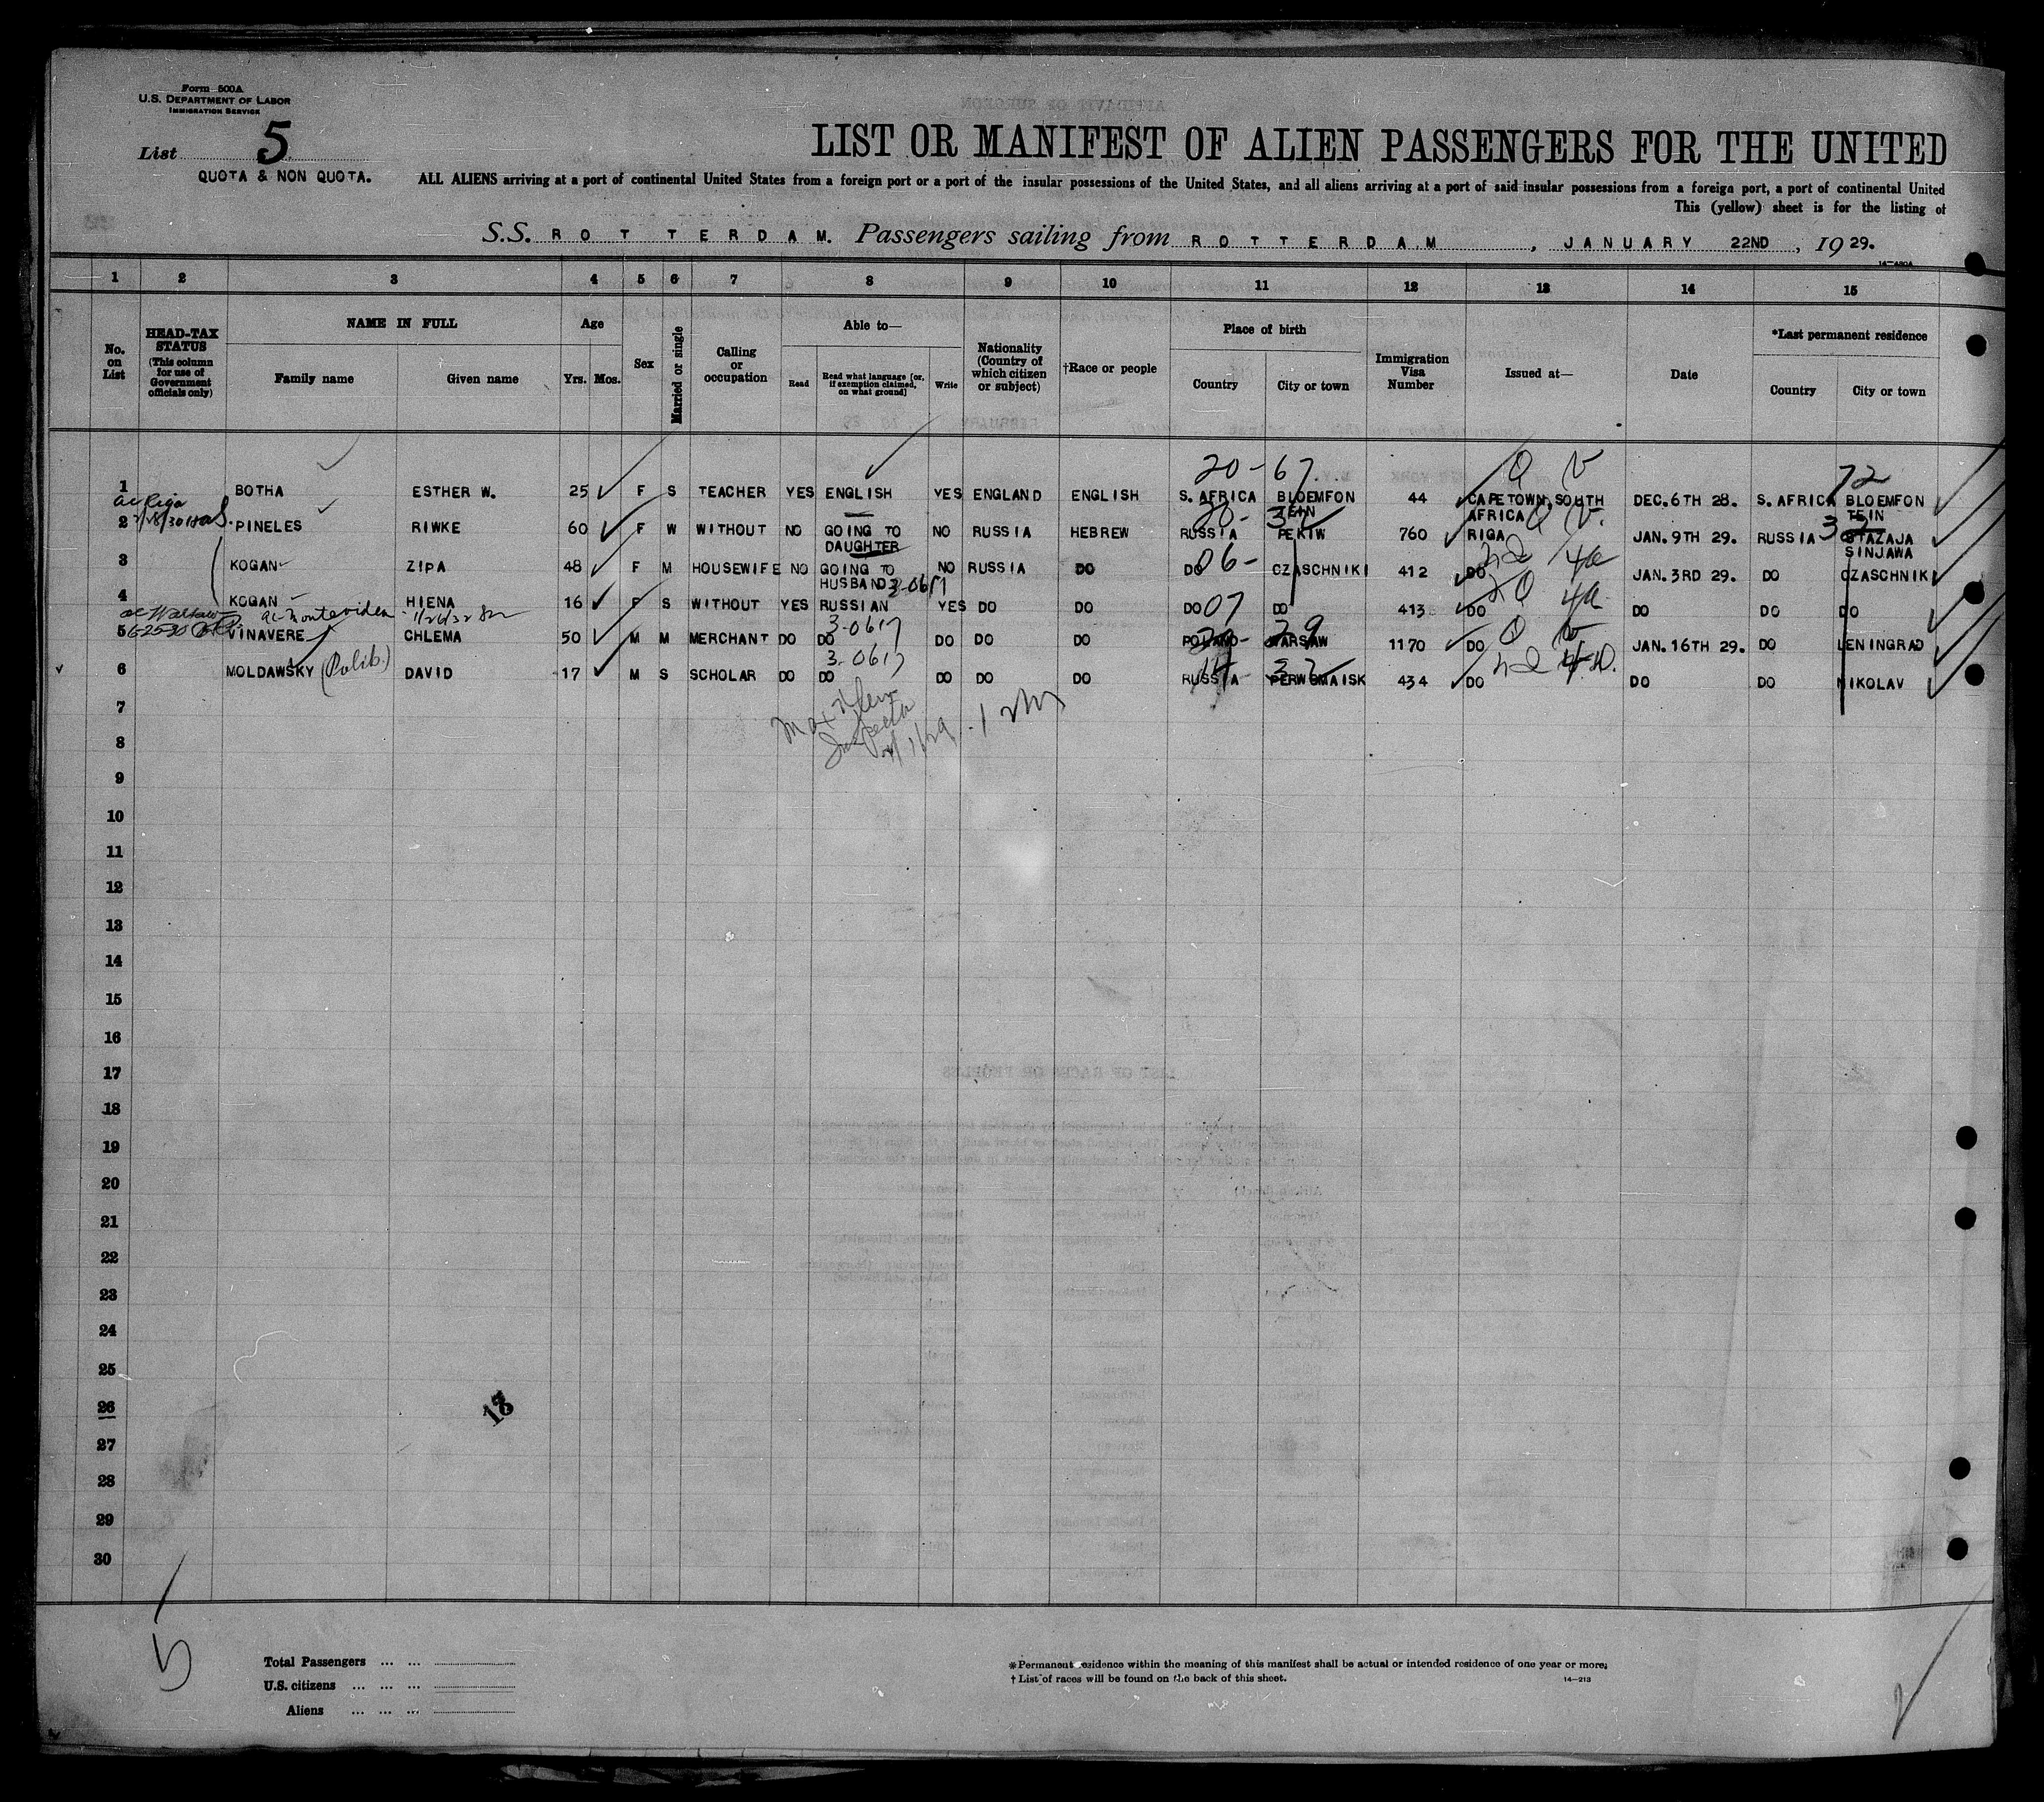 Form 500A
U.S. DEPARTMENT OF LABOR
IMMIGRATION SERVICE
List 5
QUOTA & NON QUOTA.
LIST OR MANIFEST OF ALIEN PASSENGERS FOR THE UNITED
ALL ALIENS arriving at a port of continental United States from a foreign port or a port of the insular possessions of the United States, and all aliens arriving at a port of said insular possessions from a foreign port, a port of continental United
This (yellow) sheet is for the listing of
S.S. ROTTERDAM. Passengers sailing from ROTTERDAM, JANUARY 22ND, 1929.
14-480A
1 2 3 4 5 6 7 8 9 10 11 12 13 14 15
No. on List
HEAD-TAX STATUS
(This column for use of Government officials only)
NAME IN FULL
Family name
Given name
Age
Yrs. Mos.
Sex
Married or single
Calling or occupation
Able to—
Read
Read what language [or, if exemption claimed, on what ground]
Write
Nationality (Country of which citizen or subject)
†Race or people
Place of birth
Country
City or town
Immigration Visa Number
Issued at—
Date
*Last permanent residence
Country
City or town
20-67 Q V 72
1 BOTHA ESTHER W. 25 F S TEACHER YES ENGLISH YES ENGLAND ENGLISH S. AFRICA BLOEMFON TEIN 44 CAPETOWN, SOUTH AFRICA DEC. 6TH 28. S. AFRICA BLOEMFON TEIN
2 PINELES RIWKE 60 F W WITHOUT NO GOING TO DAUGHTER NO RUSSIA HEBREW RUSSIA PEKIW 760 RIGA JAN. 9TH 29. RUSSIA STAZAJA SINJAWA
3 KOGAN ZIPA 48 F M HOUSEWIFE NO GOING TO HUSBAND NO RUSSIA DO DO 06- CZASCHNIKI 412 DO JAN. 3RD 29. DO CZASCHNIKI
3-0617
4 KOGAN HIENA 16 F S WITHOUT YES RUSSIAN YES DO DO DO 07 DO 413 DO DO DO DO
ac Montevideo
3-0617
5 VINAVERE CHLEMA 50 M M MERCHANT DO DO DO DO DO POLAND WARSAW 1170 DO JAN. 16TH 29. DO LENINGRAD
3-0617
6 MOLDAWSKY DAVID 17 M S SCHOLAR DO DO DO DO DO RUSSIA PERWOMAISK 434 DO DO DO NIKOLAV
7
8
9
10
11
12
13
14
15
16
17
18
19
20
21
22
23
24
25
26
27
28
29
30
13
5
Total Passengers
U.S. citizens
Aliens
*Permanent residence within the meaning of this manifest shall be actual or intended residence of one year or more.
†List of races will be found on the back of this sheet.
14-213